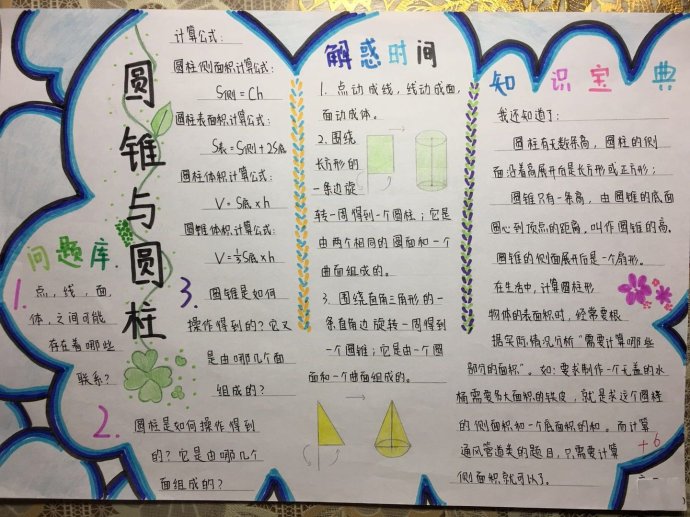 圆锥与圆柱
问题库
1.
点，线，面，
体，之间可能
存在着哪些
联系？
2.
圆柱是如何操作得到
的？它是由哪几个
面组成的？
计算公式：
圆柱侧面积计算公式：
S侧=Ch
圆柱表面积计算公式：
S表=S侧+2S底
圆柱体积计算公式：
V=S底×h
圆锥体积计算公式：
V=⅓S底×h
3.
圆锥是如何
操作得到的？它又
是由哪几个面
组成的？
解惑时间
1. 点动成线，线动成面，
面动成体。
2. 围绕
长方形的
一条边旋
转一周得到一个圆柱；它是
由两个相同的圆面和一个
曲面组成的。
3. 围绕直角三角形的一
条直角边旋转一周得到
一个圆锥；它是由一个圆
面和一个曲面组成的。
知识宝典
我还知道了：
圆柱有无数条高，圆柱的侧
面沿着高展开后是长方形或正方形；
圆锥只有一条高，由圆锥的底面
圆心到顶点的距离，叫作圆锥的高。
圆锥的侧面展开后是一个扇形。
在生活中，计算圆柱形
物体的表面积时，经常要根
据实际情况分析“需要计算哪些
部分的面积”。如：要求制作一个无盖的水
桶需要多大面积的铁皮，就是求这个圆柱
的侧面积和一个底面积的和。而计算
通风管道类的题目，只需要计算
侧面积就可以了。
+6